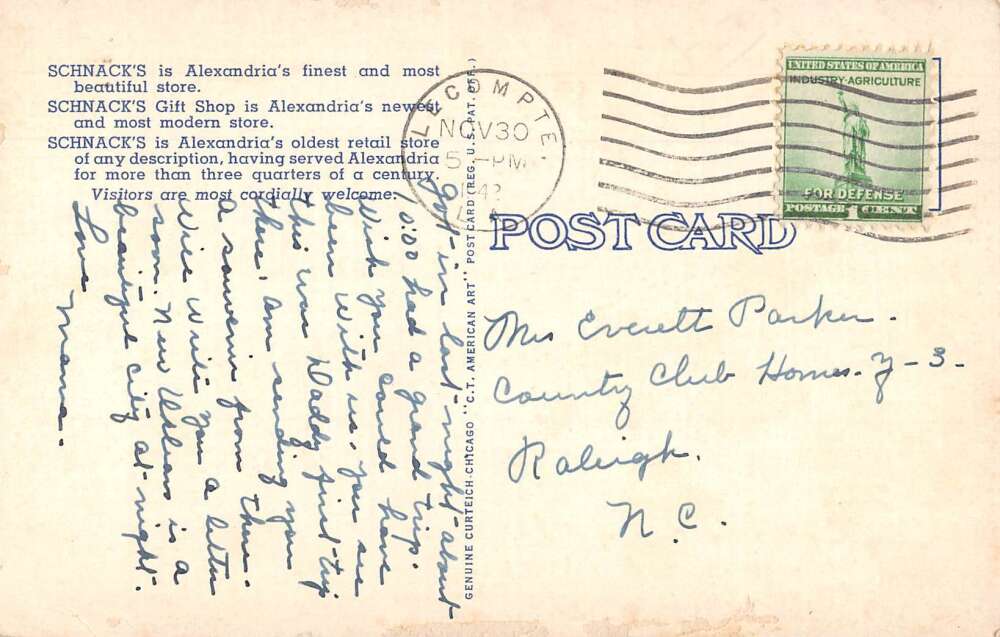 SCHNACK'S is Alexandria's finest and most
beautiful store.
SCHNACK'S Gift Shop is Alexandria's newest
and most modern store.
SCHNACK'S is Alexandria's oldest retail store
of any description, having served Alexandria
for more than three quarters of a century.
Visitors are most cordially welcome.
Got-in last-night-about
10:00 had a grand trip.
Wish you could have
been with us, you see
this was Daddy first-trip
there. Am sending you
a souvenir from there.
Will write you a letter
soon. New Orleans is a
beautiful city at-night.
Love Mama.
GENUINE CURTEICH-CHICAGO "C.T. AMERICAN ART" POST CARD (REG. U.S. PAT. OFF.)
LECOMPTE
NOV 30
5-PM
1942
LA
UNITED STATES OF AMERICA
INDUSTRY-AGRICULTURE
FOR DEFENSE
POSTAGE 1 CENT
POST CARD
Mrs Everett Parker.
Country Club Homes. Z-3-
Raleigh.
N.C.